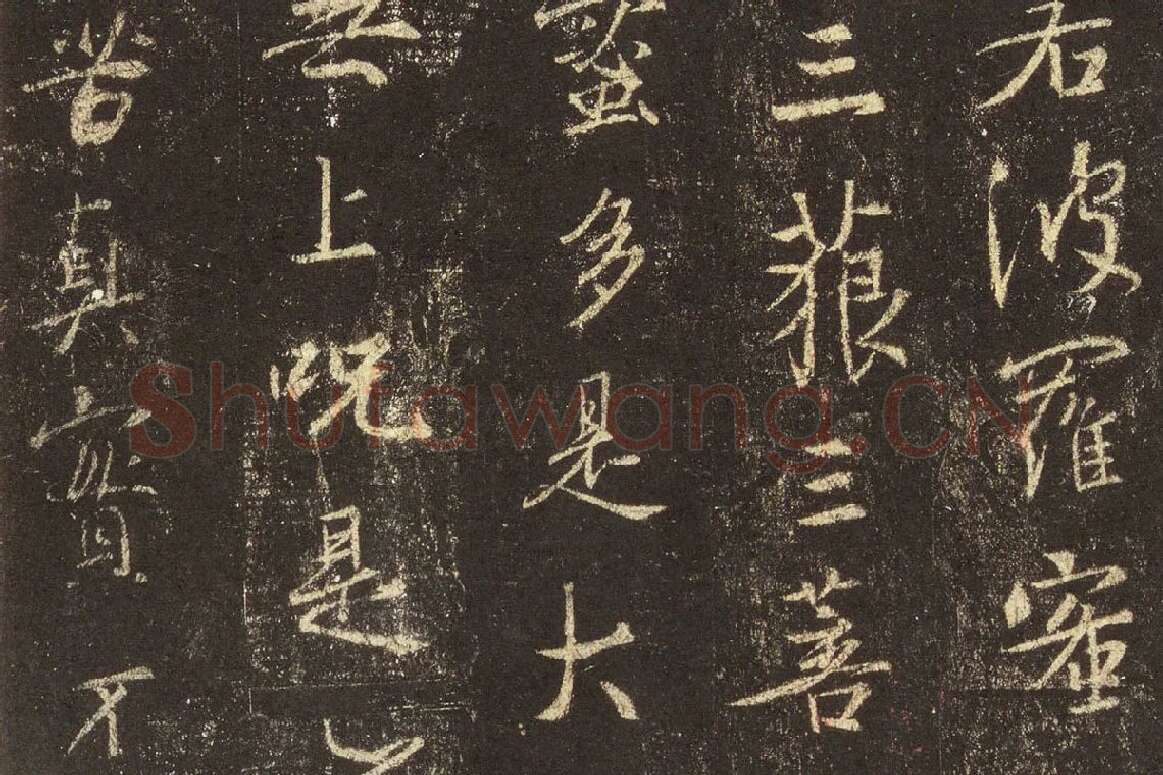 若波羅蜜
三藐三菩
蜜多是大
無上呪是
苦真實不
Shufawang.CN